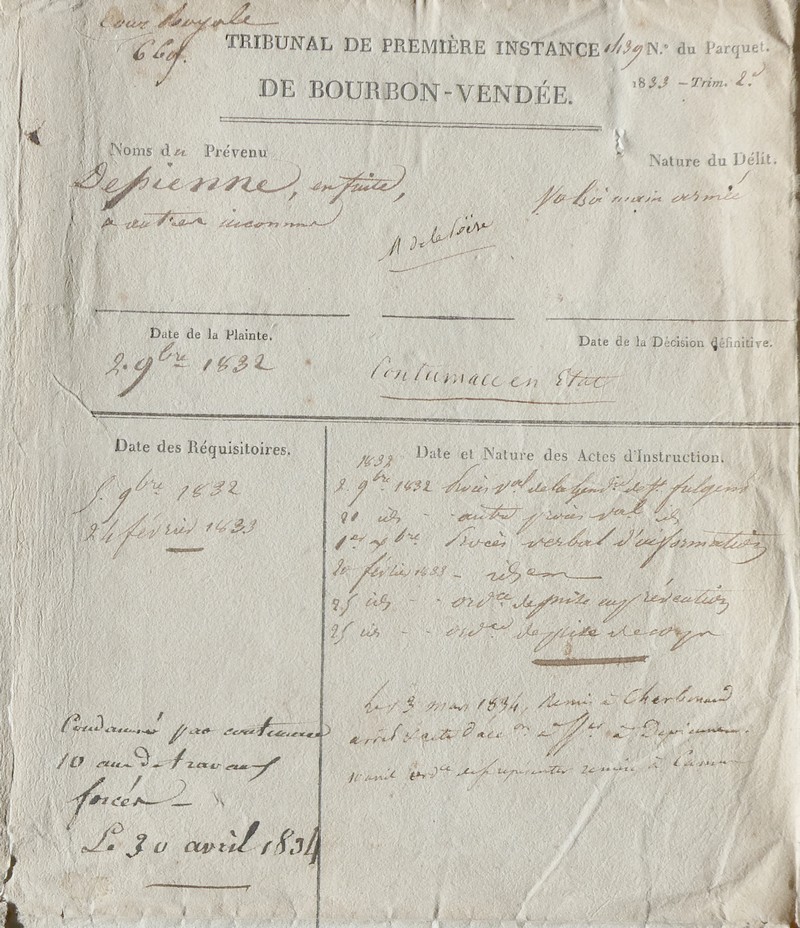 Cour Royale
669.
TRIBUNAL DE PREMIÈRE INSTANCE
DE BOURBON-VENDÉE.
1439 N.º du Parquet.
1833 – Trim. 2.e
Noms du Prévenu
Depienne, en fuite,
& autres inconnus
Nature du Délit.
Vol à main armée
Date de la Plainte.
2. 9bre 1832
Contumace en État
Date de la Décision définitive.
Date des Réquisitoires.
5. 9bre 1832
24 février 1833
Condamné par contumace
10 ans de travaux
forcés –
Le 30 avril 1834
Date et Nature des Actes d'Instruction.
1832
2. 9bre 1832 Procès val de la gend.ie de St. fulgent
id - autre procès val id
1er xbre Procès verbal d'information
20 février 1833 - idem
25 id - - ordce de mise en prévention
25 id - - ordce de prise de corps
3 mars 1834, Remis à
arrêt & acte d'accon à Depienne.
10 avril ordce de représenter remise à